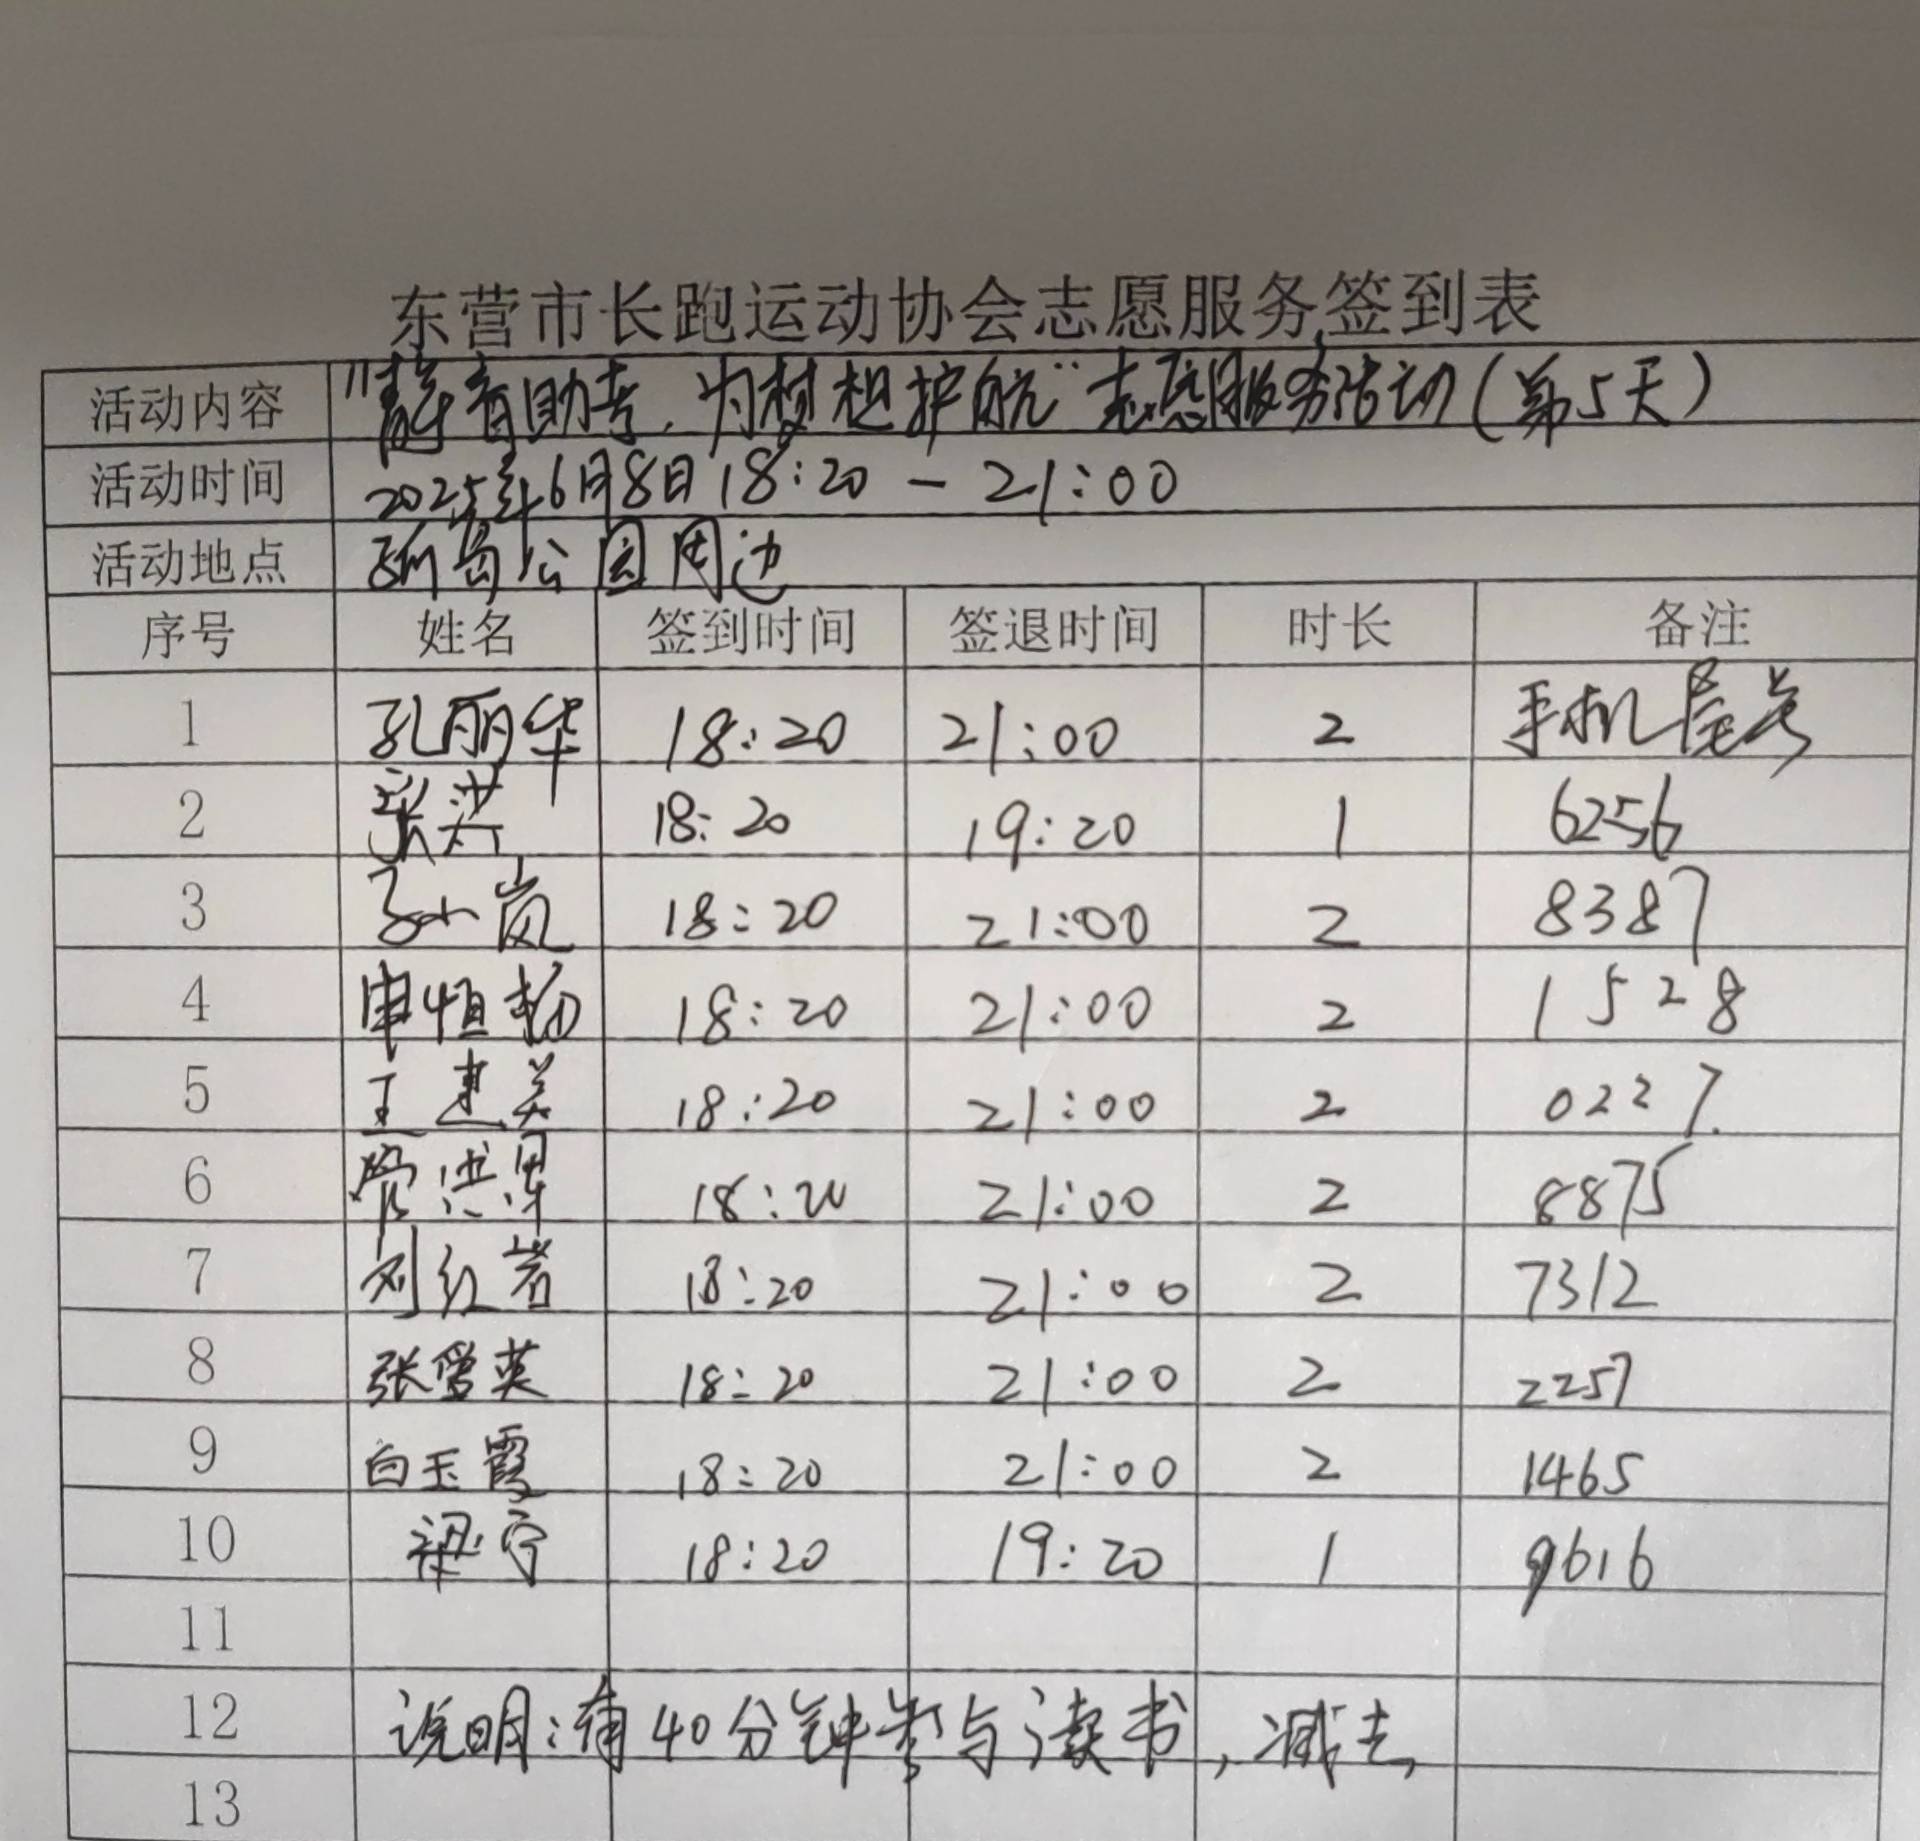 东营市长跑运动协会志愿服务签到表
活动内容 "静音助考，为梦想护航"志愿服务活动(第5天)
活动时间 2025年6月8日18:20-21:00
活动地点 孤岛公园周边
序号 姓名 签到时间 签退时间 时长 备注
1 孔丽华 18:20 21:00 2 手机尾号
2 张洪 18:20 19:20 1 6256
3 孙小岚 18:20 21:00 2 8387
4 申恒杨 18:20 21:00 2 1528
5 王建美 18:20 21:00 2 0227.
6 18:20 21:00 2 8875
7 刘红岩 18:20 21:00 2 7312
8 张爱英 18:20 21:00 2 2257
9 白玉霞 18:20 21:00 2 1465
10 梁宁 18:20 19:20 1 9616
11
12 说明:有40分钟参与读书,减去
13